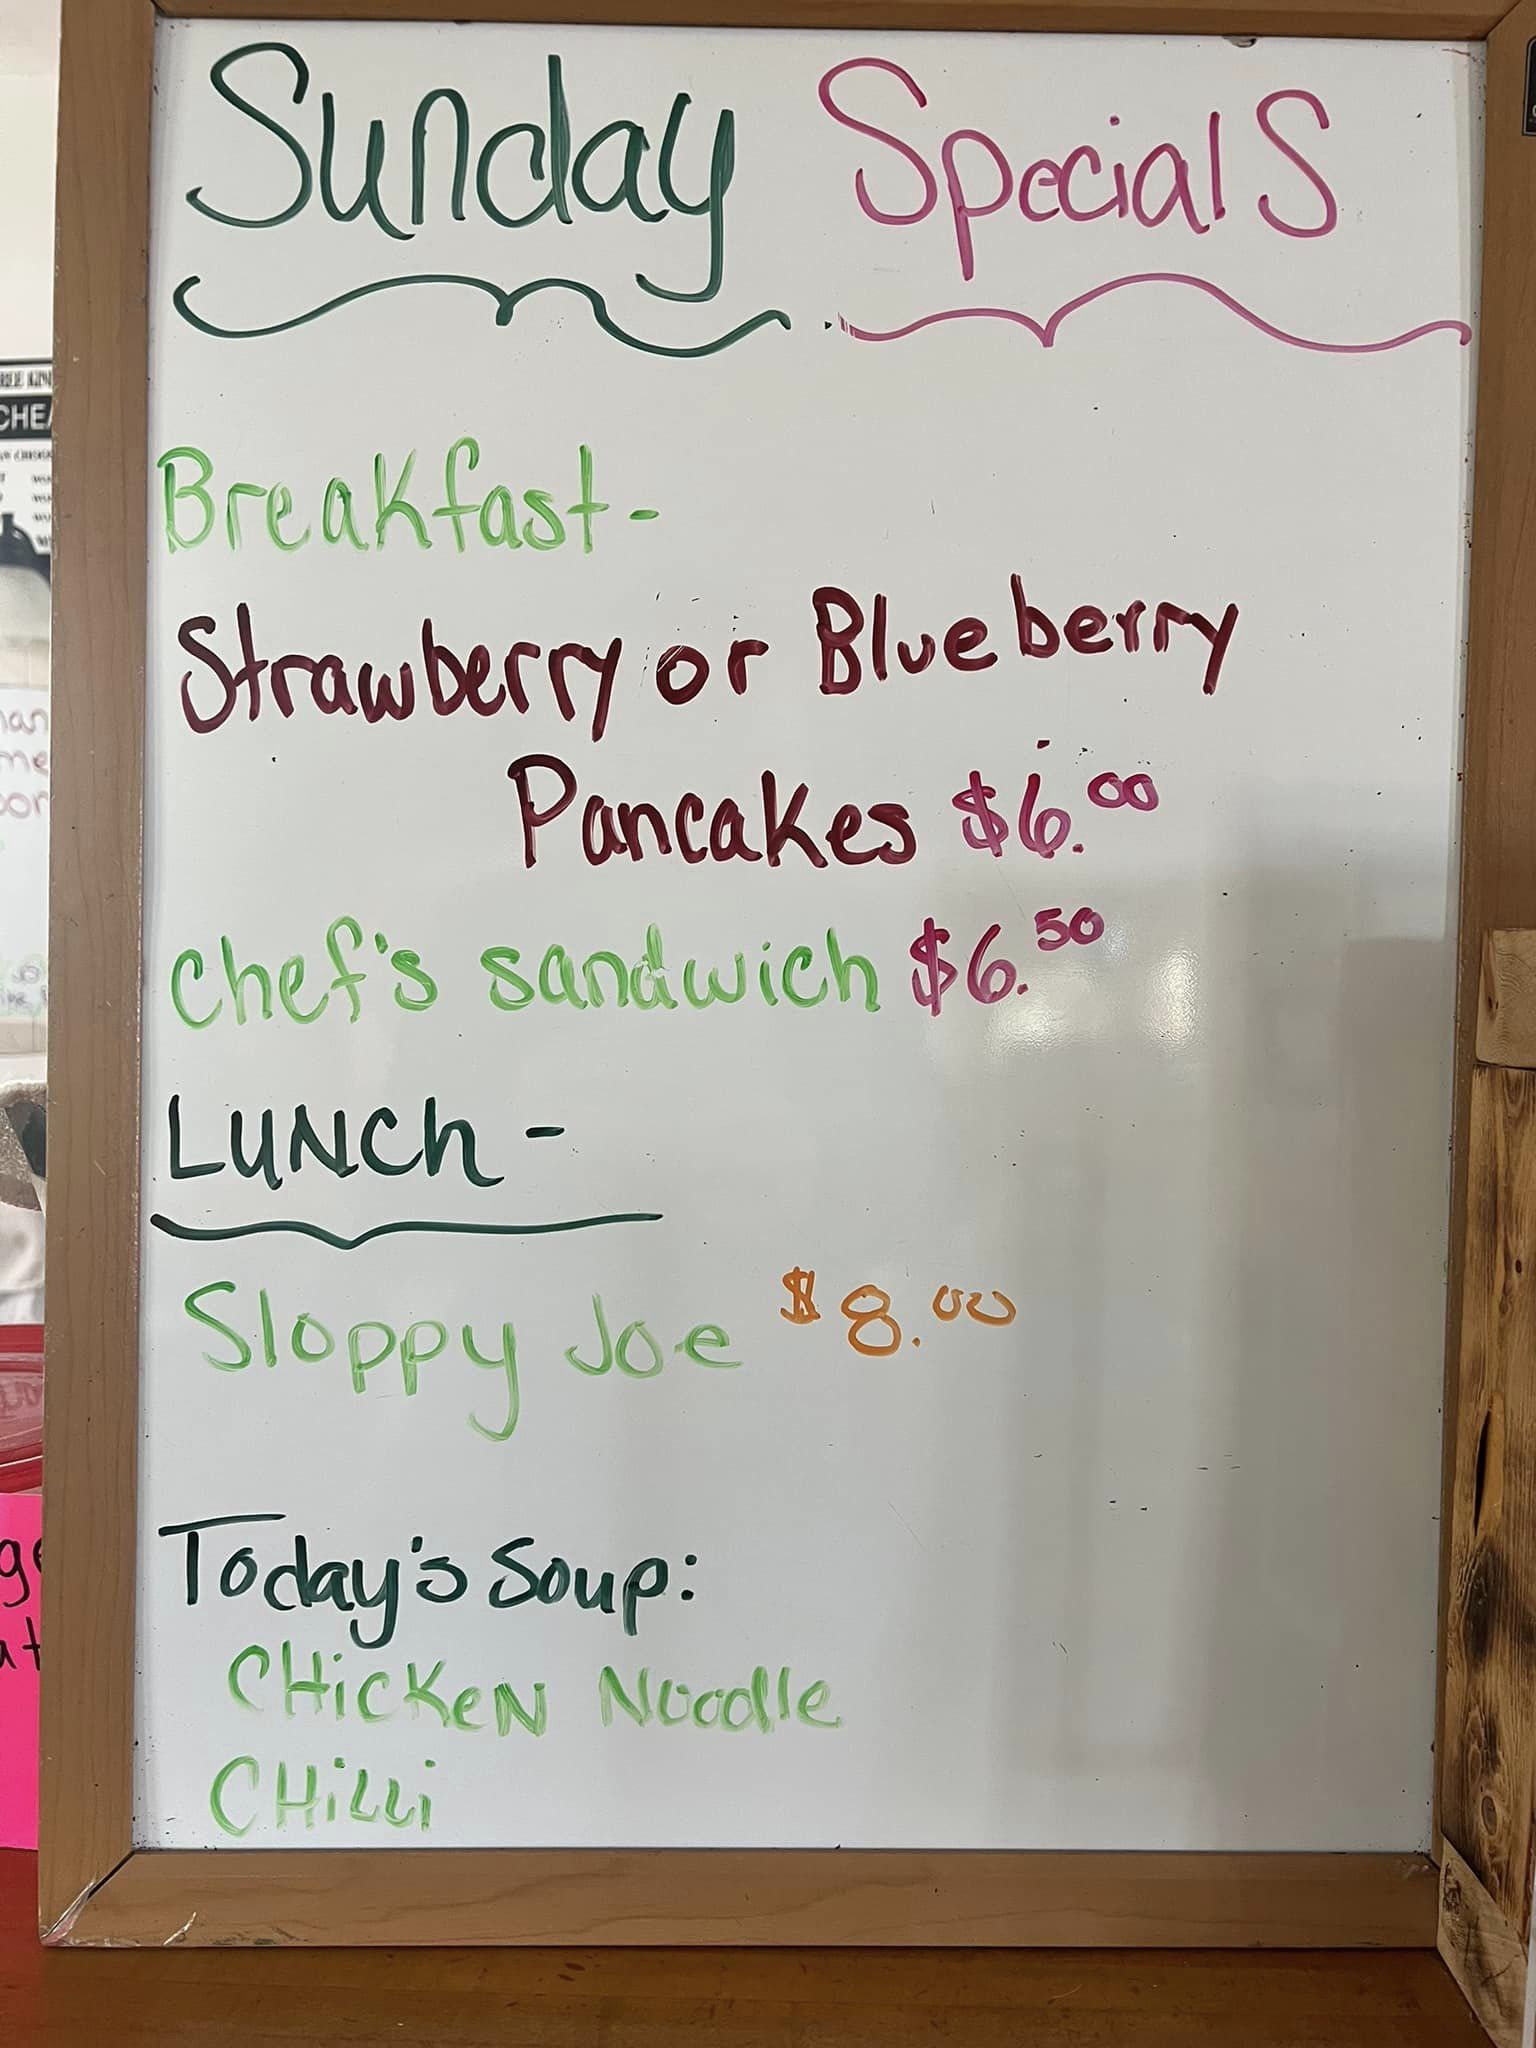 Sunday Specials
Breakfast-
Strawberry or Blueberry
Pancakes $6.00
Chef's sandwich $6.50
LUNCh -
Sloppy Joe $8.00
Today's Soup:
CHicKeN Noodle
CHiLLi
CHEA
nan
me